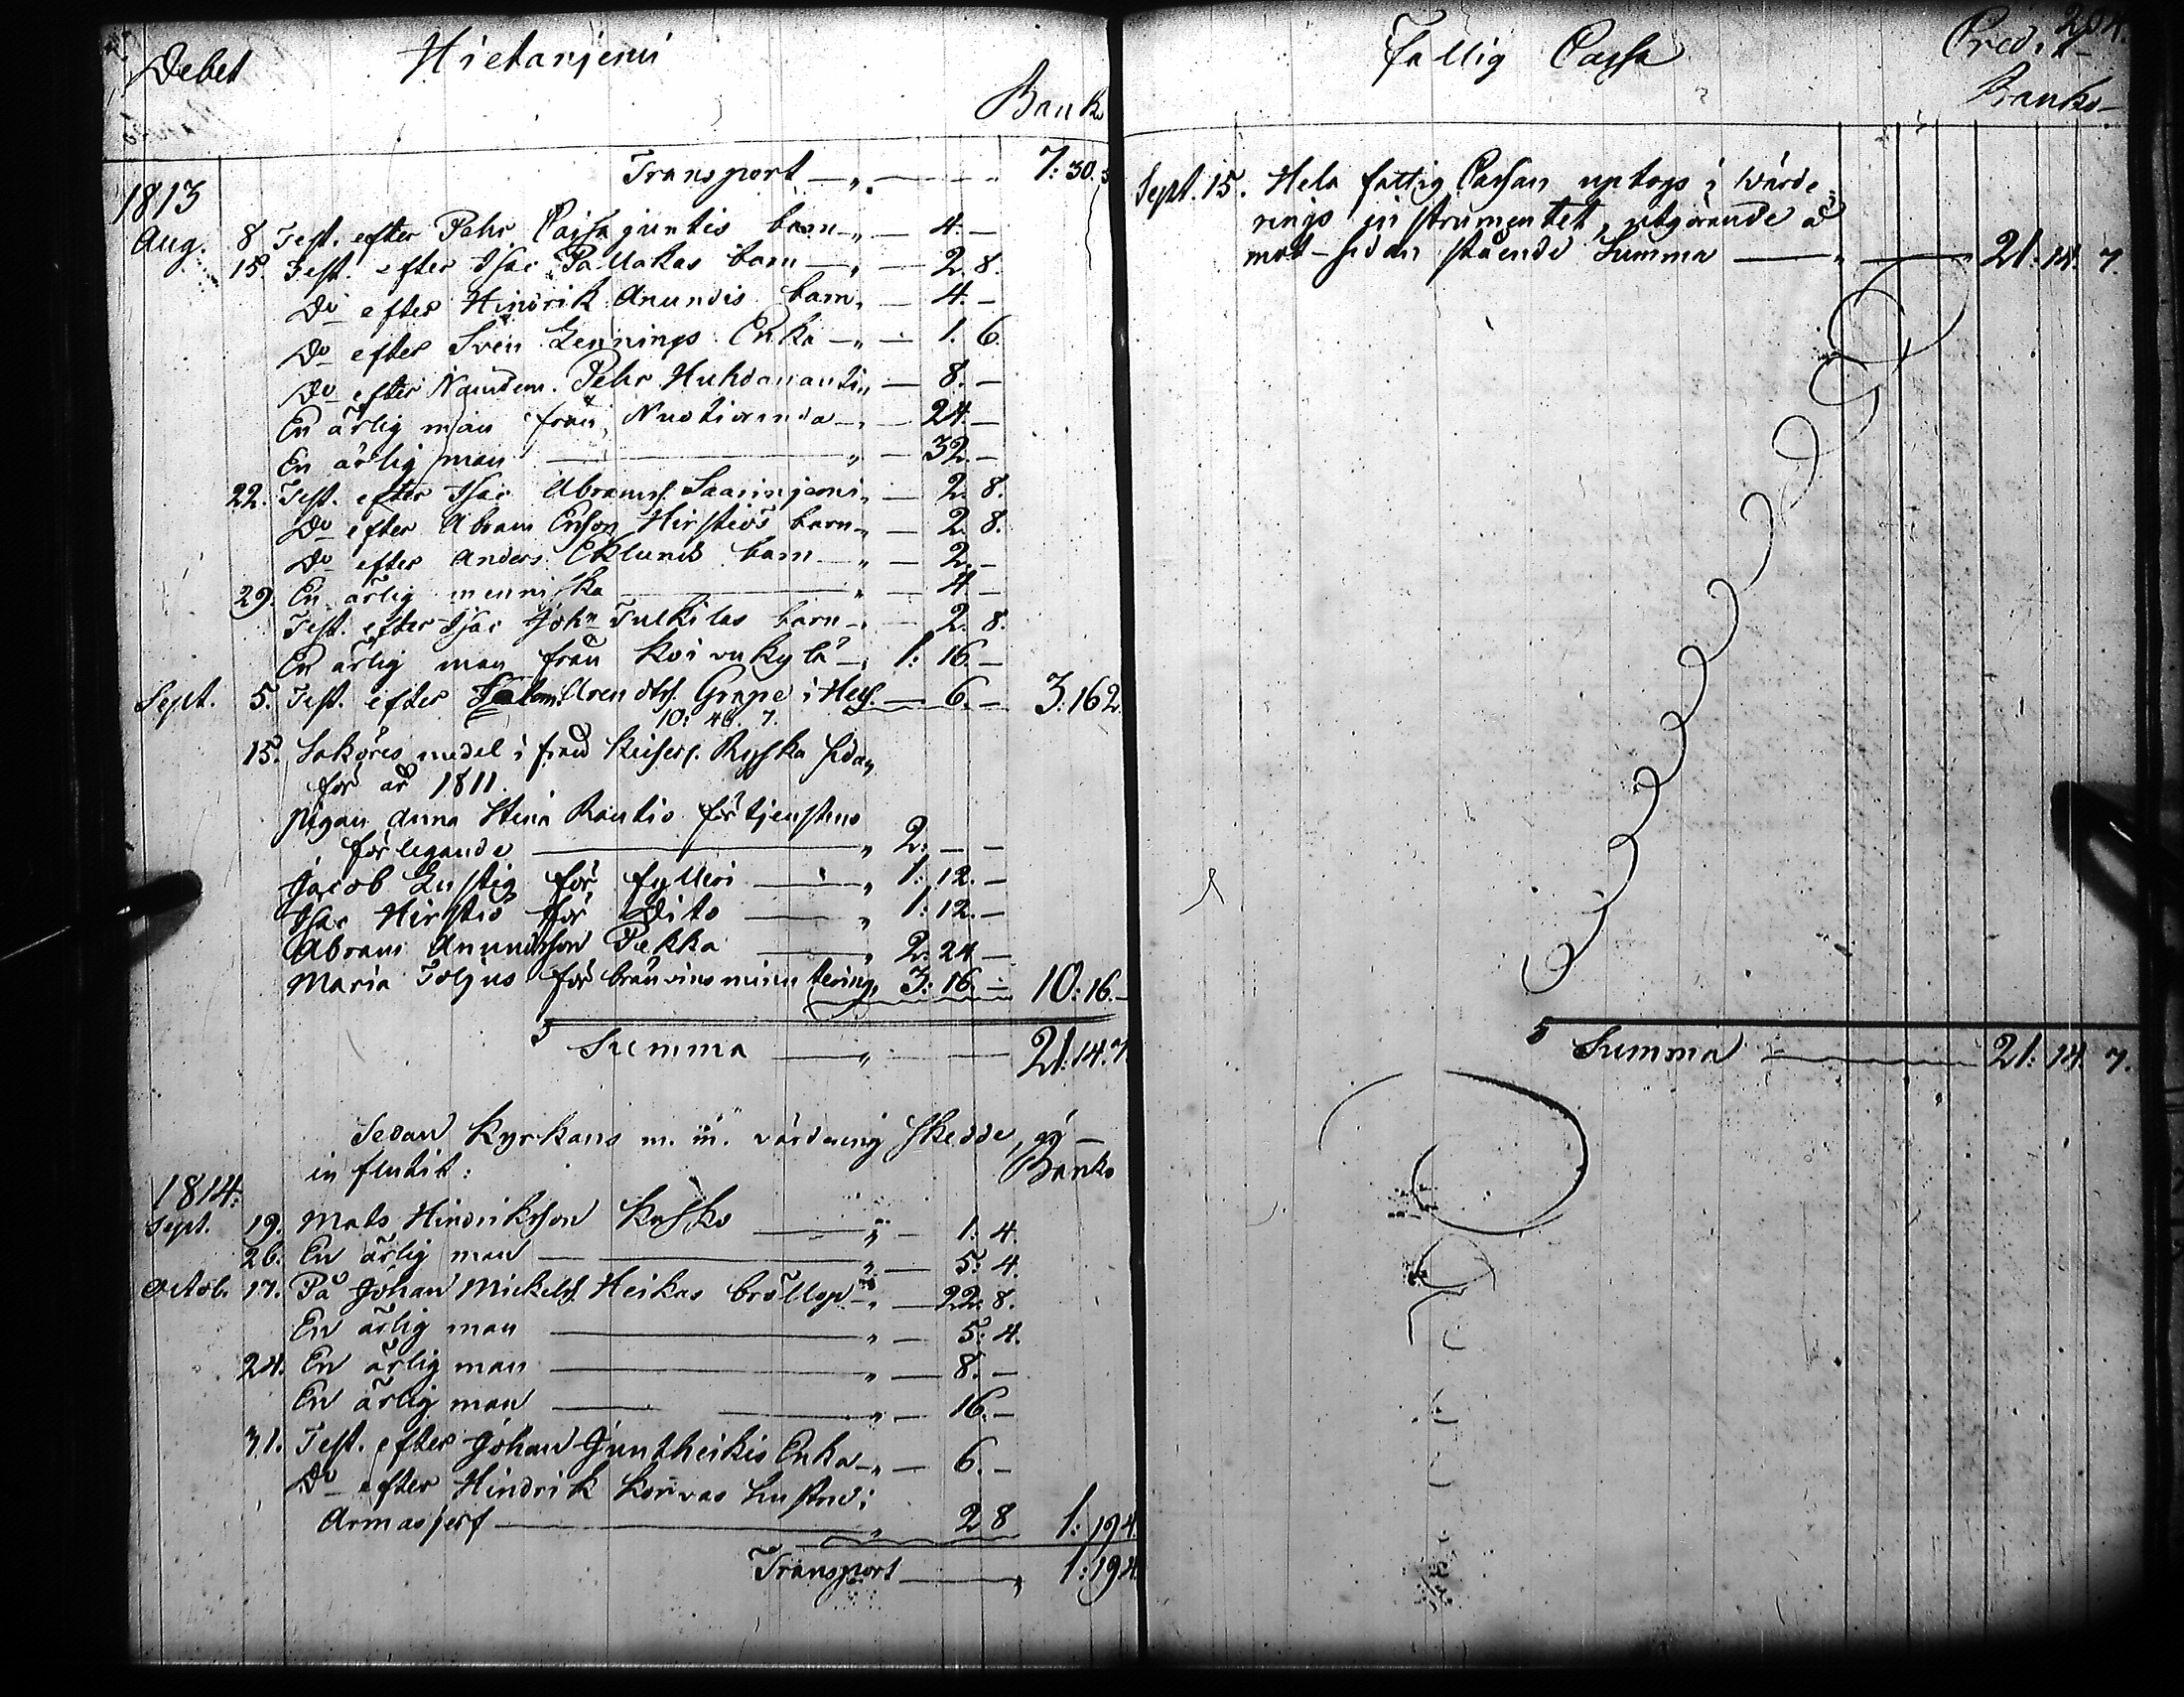 Debet Hietaniemi
Banko
Transport — „ — 7: 30. 5
1813
Aug. 8 Test. efter Pehr Pajsajuntis barn — „ — 4. —
15. Test. efter Isac Pallakas barn — „ — 2. 8.
Do efter Hindrik Anundis barn „ — 4. —
Do efter Sven Lennings Enka — „ — 1. 6.
Do efter Nämdem. Pehr Huhdanantin — 8. —
En ärlig man från Nuotiranda — „ — 24. —
En ärlig man — „ — 32. —
22. Test. efter Isac Abramss. Saarinjemi „ — 2. 8.
Do efter Abram Erson Hirstiös barn „ — 2. 8.
Do efter Anders Eklunds barn — „ — 2. —
29. En ärlig menniska — „ — 4 —
Test. efter Isac Johns Tulkilas barn — „ — 2. 8.
En ärlig man från Koivukylä — „ 1: 16. —
Sept. 5. Test. efter Arendts. Grape i Hes. — 6. — 3: 16 2.
10: 46. 7.
15. Saköres medel i från Keiserl. Ryska sidan
för år 1811.
Pigan Anna Stina Rautio för tjenstens
förlegande — „ 2: — —
Jacob Lustig för fylleri — „ 1: 12. —
Isac Hirstiö för Dito — „ 1: 12. —
Abram Anundsson Pekka — „ 2: 24 —
Maria Toljus för bränvins minutering „ 3: 16. — 10: 16. —
Summa — „ — 21: 14. 7.
Sedan Kyrkans m. m. värdering skedde,
influtit: Banko
1814.
Sept. 19. Mats Hindriksson Kysko — „ — 1: 4.
26. En ärlig man — „ — 5: 4.
Octob. 17. På Johan Mickels. Heikas bröllop — „ — 22. 8.
En ärlig man — „ — 5: 4.
24. En ärlig man — „ — 8. —
En ärlig man — „ — 16. —
31. Test. efter Johan Juntheikis Enka — „ — 6. —
Do efter Hindrik Korvas hustru i
Armasjerf — „ 2 8 1: 19 4.
Transport — „ 1: 19 4.
Fattig Cassa Credit 204.
Banko
Sept. 15. Hela fattig Cassan uptogs i Wärde-
rings instrumentet, utgörande å
mot-sidan stående Summa — „ — 21: 14. 7.
Summa — 21: 14. 7.